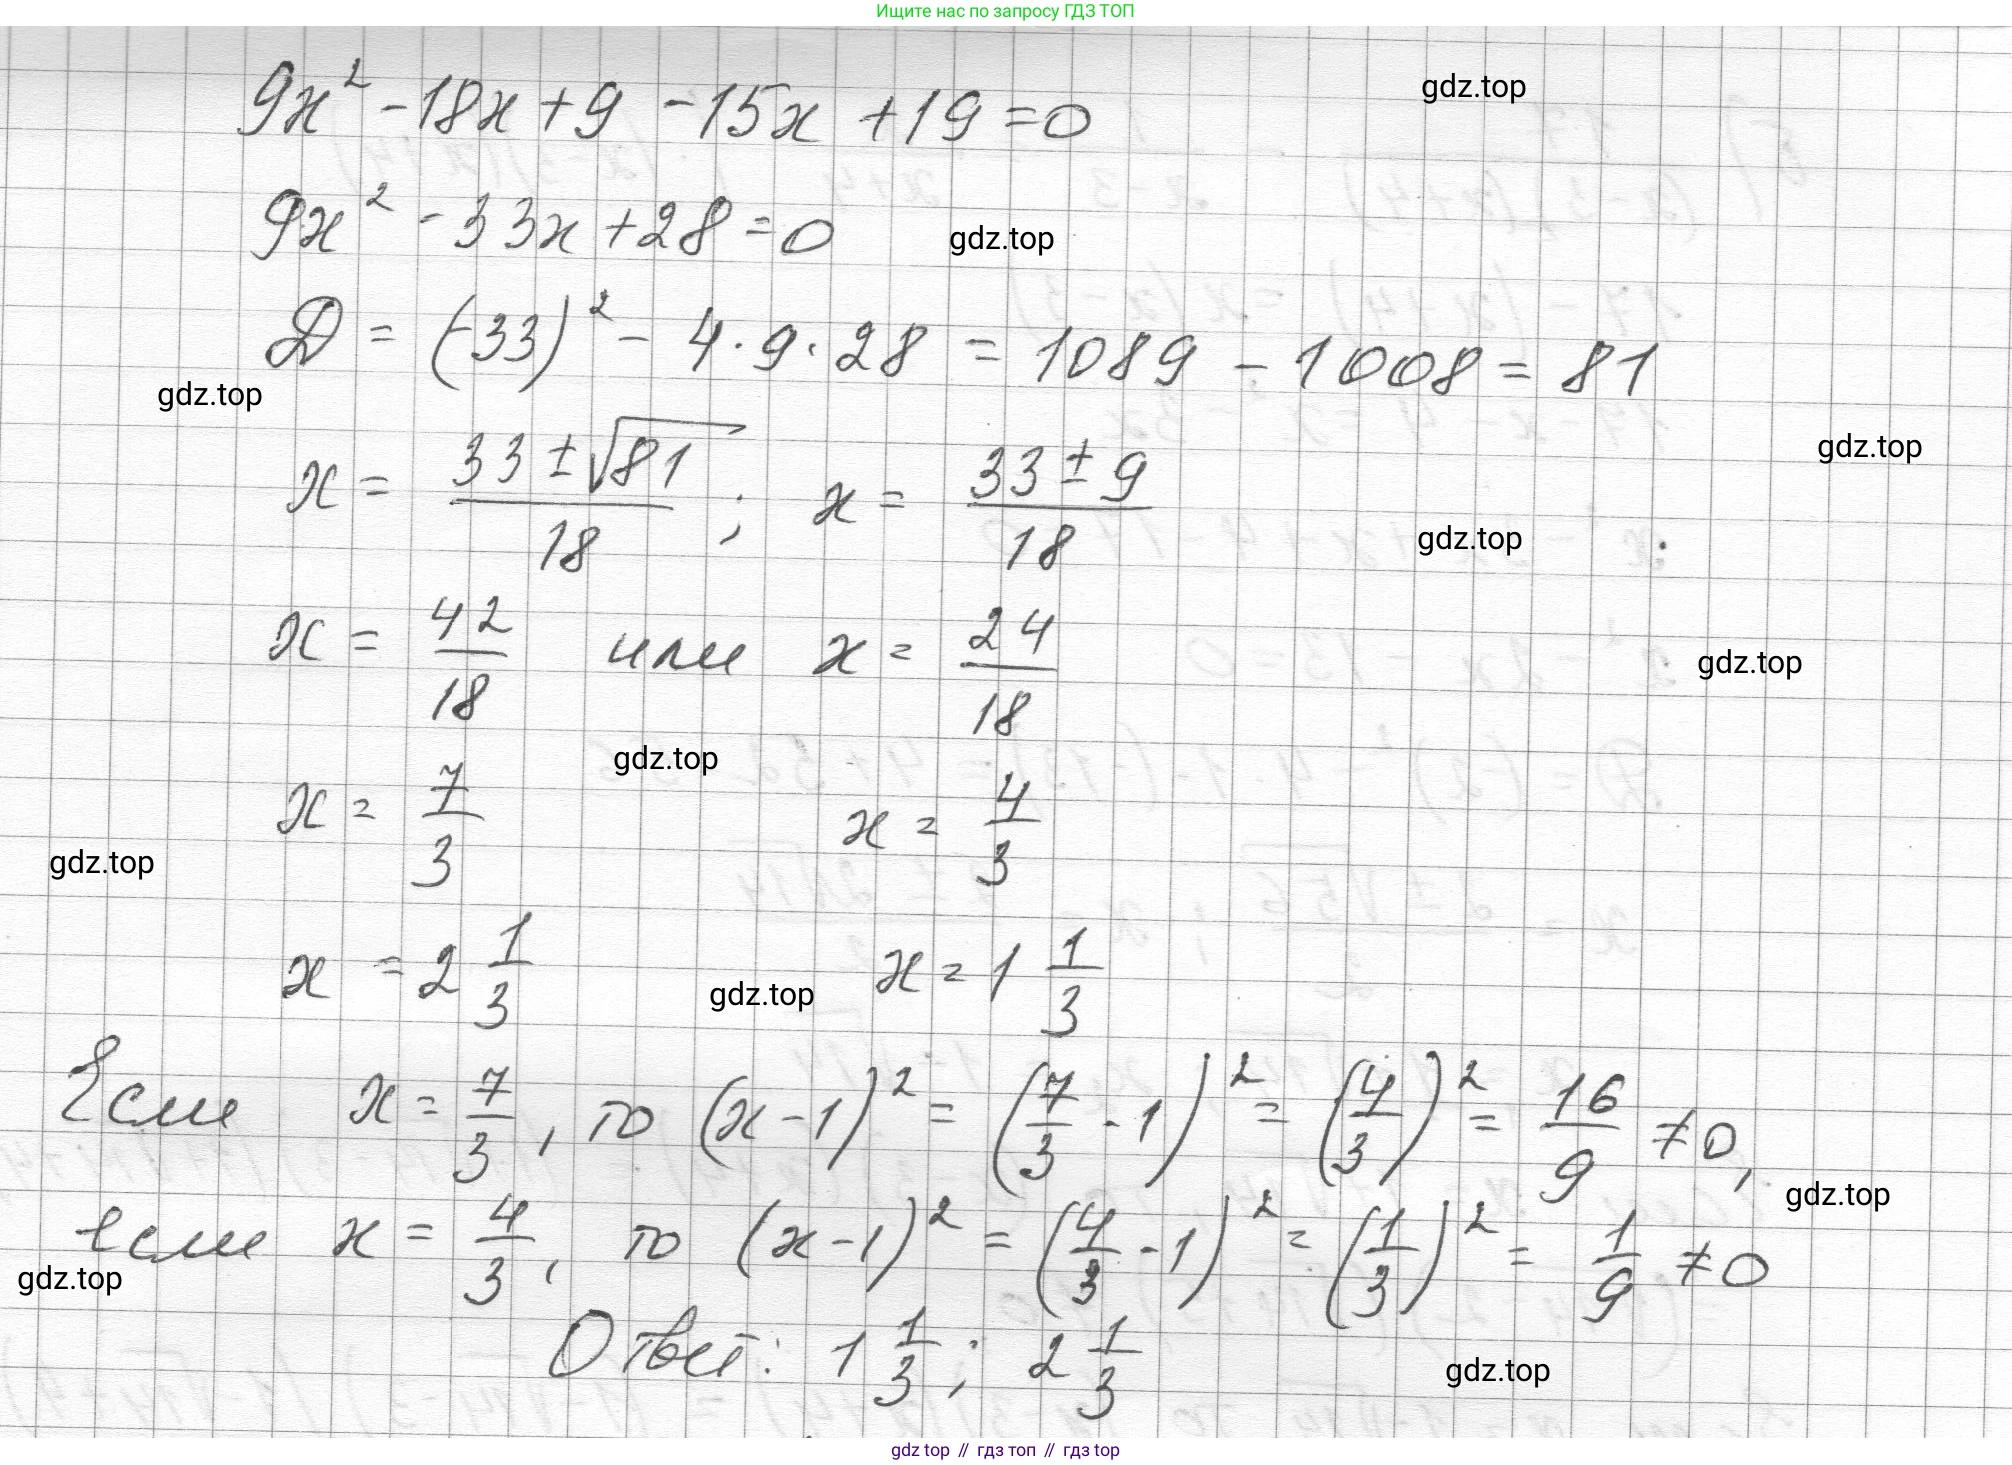 Ищите нас по запросу ГДЗ ТОП
9x² - 18x + 9 - 15x + 19 = 0
gdz.top
9x² - 33x + 28 = 0
gdz.top
D = (-33)² - 4 · 9 · 28 = 1089 - 1008 = 81
gdz.top
x = (33 ± √81)/18 ; x = (33 ± 9)/18
gdz.top
gdz.top
x = 42/18 или x = 24/18
gdz.top
gdz.top
x = 7/3 x = 4/3
gdz.top
x = 2 1/3 x = 1 1/3
gdz.top
Если x = 7/3, то (x - 1)² = (7/3 - 1)² = (4/3)² = 16/9 ≠ 0,
gdz.top
если x = 4/3, то (x - 1)² = (4/3 - 1)² = (1/3)² = 1/9 ≠ 0
gdz.top
Ответ: 1 1/3 ; 2 1/3
gdz.top
gdz top // гдз топ // гдз top